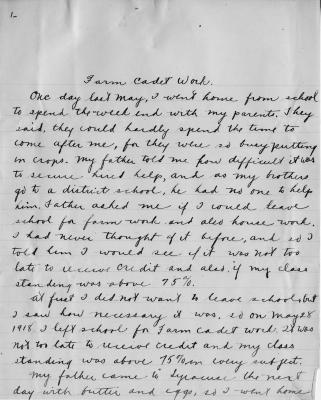 1-
Farm Cadet Work.
One day last May, I went home from school
to spend the week end with my parents. They
said, they could hardly spend the time to
come after me, for they were so busy putting
in crops. My father told me how difficult it was
to secure hired help, and as my brothers
go to a district school, he had no one to help
him. Father asked me if I would leave
school for farm work and also house work.
I had never thought of it before, and so I
told him I would see if it was not too
late to receive credit and also if my class
standing was above 75%.
At first I did not want to leave school, but
I saw how necessary it was, so on May 28
1918 I left school for Farm cadet work. It was
not too late to receive credit and my class
standing was above 75% in every subject.
My father came to Syracuse the next
day with butter and eggs, so I went home